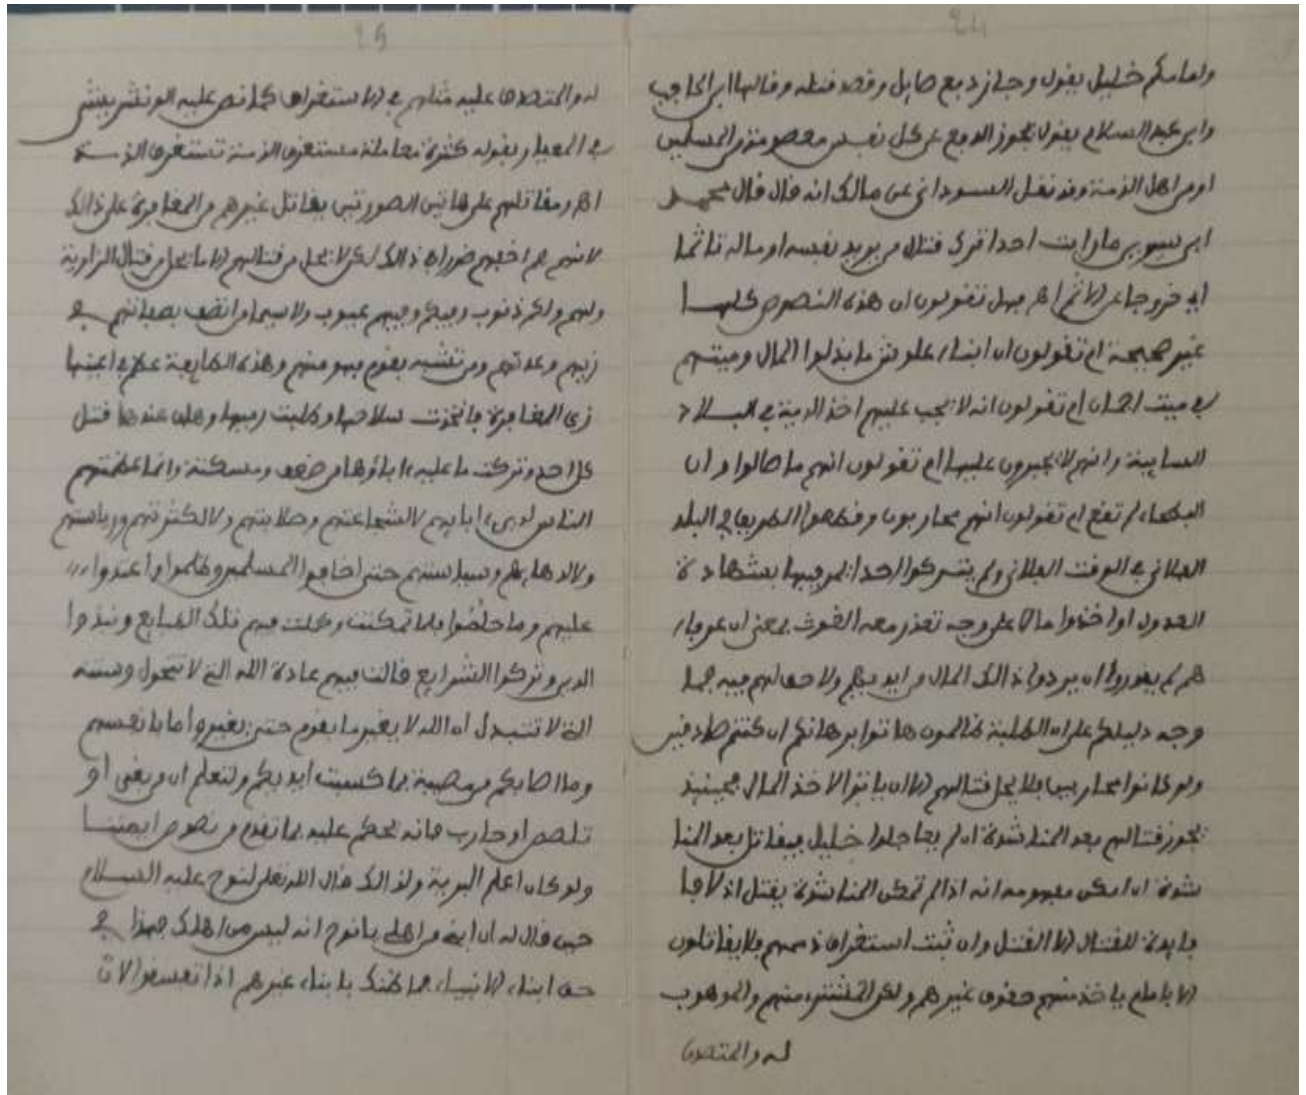 24
ولمامكم خليل يقول وجاز دفع صايل وقصد قتله وقالها ابن الحاجب
وابن عبد السلام يقول يجوز الدفع عن كل نفس معصومة من المسلمين
او من اهل الذمة وقد نقل السوداني عن مالك انه قال قال محمد
ابن سيرين ما رايت احدا ترك قتال من يريد نفسه او ماله تاثما
اي خروجا عن الاثم اهـ فهل تقولون ان هذه النصوص كلها
غير صحيحة ام تقولون ان ابناء علوش ما بذلوا المال وميتهم
في ميت ام تقولون انه لا تجب عليهم اخذ الدية في البلاد
السايبة وانهم لا يجبرون عليها ام تقولون انهم ما صالوا وان
لم تقع ام تقولون انهم محاربون وقطعوا الطريق في البلد
الفلاني في الوقت الفلاني ولم يتركوا احدا يمر فيها بشهادة
العدول او اخذوا مالا على وجه تعذر معه الغوث بمعنى ان
هم لم يقدروا ان يردوا ذالك المال من ايديهم ولا حق لهم فيه فما
وجه دليلكم على ان الطلبة ظالمون هاتوا برهانكم ان كنتم صادقين
ولو كانوا محاربين فلا يحل قتالهم الا ان ياتوا لاخذ المال فحينئذ
يجوز قتالهم بعد المناشدة ان لم يعاجلوا خليل فيقاتل بعد المنا
شدة ان امكن مفهومه انه اذا لم تمكن المناشدة يقتل اذ لا فا
يدة للقتال الا القتل وان ثبت استغراق ذممهم فلا يقاتلون
الا بامام ياخذ منهم حقوق غيرهم ولكن المشتري منهم والموهوب
له والمتصدق
25
له والمتصدق عليه مثلهم في الاستغراق كما نص عليه الونشريشي
في المعيار بقوله كثرة معاملة مستغرق الذمة تستغرق الذمة
اهـ ومقاتلهم على هاتين الصورتين يقاتل غيرهم من المغافرة على ذالك
لانهم هم اخفهم ضررا في ذالك لكن لا يحل من قتالهم الا ما يحل من قتال الزاوية
ولهم ولكم ذنوب وفيكم وفيهم عيوب ولاسيما من اتصف بصفاتهم في
زيهم وعدتهم ومن تشبه بقوم فهو منهم وهذه الطايفة عظم في اعينها
زي المغافرة فاتخذت سلاحها وطلبت رميها وهان عندها قتل
كل احد وتركت ما عليه ءاباؤها من ضعف ومسكنة وانما عظمتهم
الناس لدين ءابايهم لا لشجاعتهم وصلابتهم ولا لكثرتهم ورياستهم
ولا لدهايهم وسياستهم حتى اخافوا المسلمين وظلموا واعتدوا
عليهم وما خلصوا فلما تمكنت وكملت فيهم تلك الطبايع ونبذوا
الدين وتركوا الشرايع قالت فيهم عادة الله التي لا تتحول وسنته
التي لا تتبدل ان الله لا يغير ما بقوم حتى يغيروا ما بانفسهم
وما اصابكم من مصيبة بما كسبت ايديكم ولتعلم ان من بغى او
تلصص او حارب فانه يحكم عليه بما تقدم من نصوص ايمتنا
ولو كان اعلم البرية ولذالك قال الله تعلى لنوح عليه السلام
حين قال له ان ابني من اهلي يانوح انه ليس من اهلك فهذا في
حق ابناء الانبياء فما ظنك بابناء غيرهم اذا تعسفوا الان